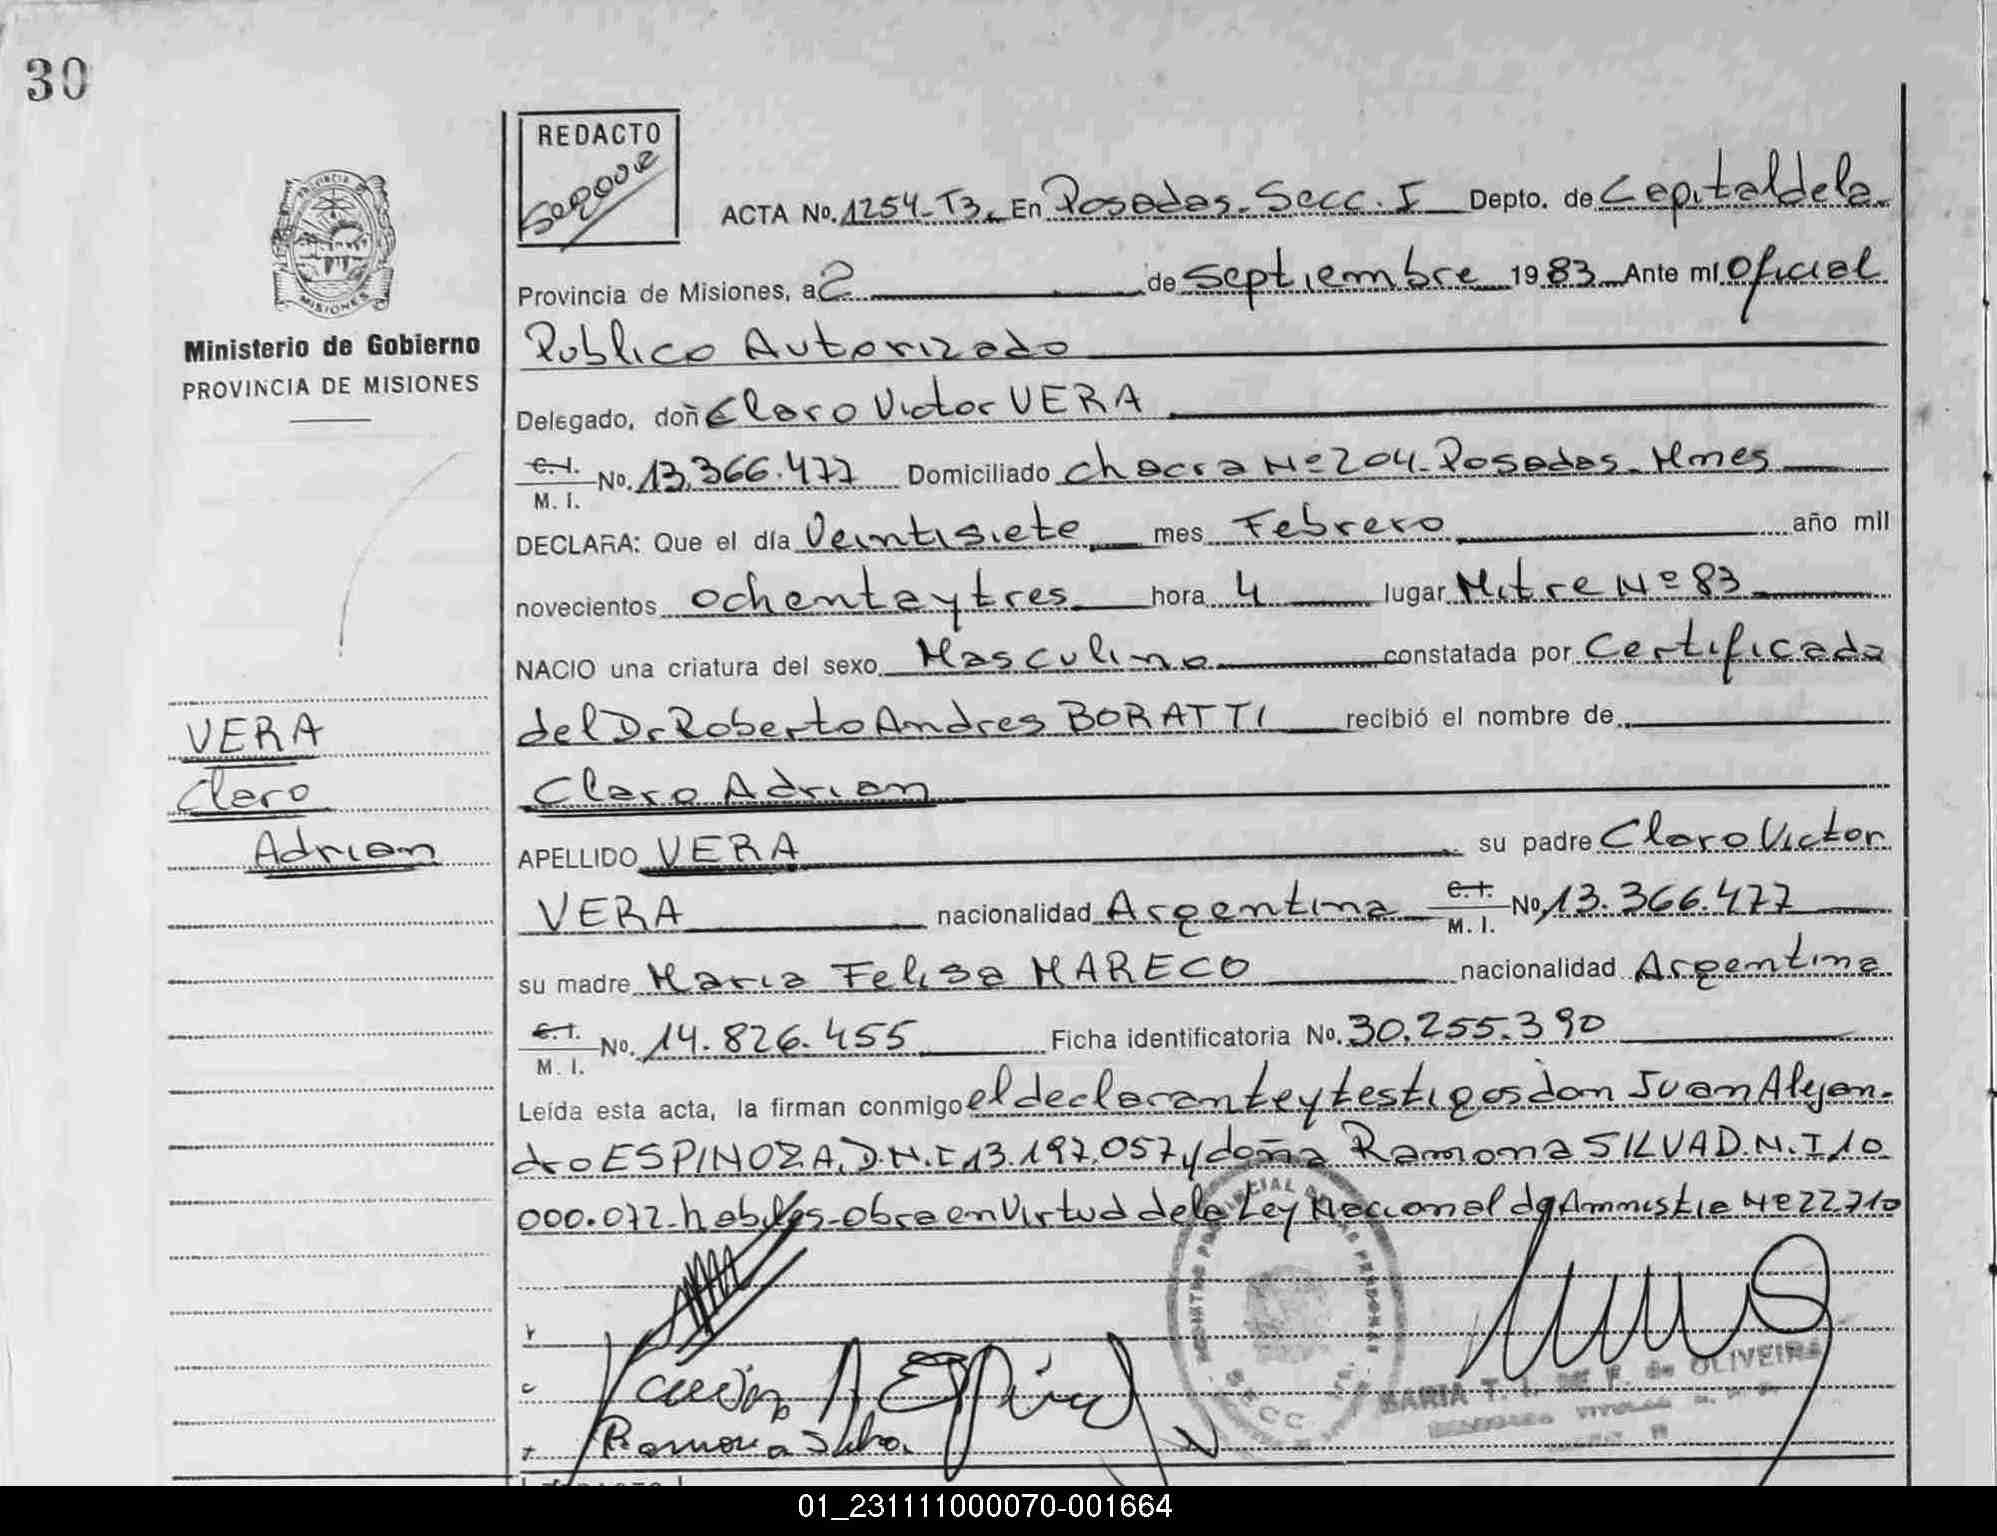 30
PROVINCIA DE
MISIONES
Ministerio de Gobierno
PROVINCIA DE MISIONES
VERA
Claro
Adrian
REDACTO
ACTA No. 1254-T3. En Posadas. Secc. I Depto. de Capital de la
Provincia de Misiones, a 2 de Septiembre 1983 Ante mi Oficial
Publico Autorizado
Delegado, doñ Claro Victor VERA
C. I.
M. I. No. 13.366.477 Domiciliado Chacra Nº 204. Posadas. Mnes
DECLARA: Que el día Veintisiete mes Febrero año mil
novecientos ochenta y tres hora 4 lugar Mitre Nº 83
NACIO una criatura del sexo Masculino constatada por Certificado
del Dr Roberto Andres BORATTI recibió el nombre de
Claro Adrian
APELLIDO VERA su padre Claro Victor
VERA nacionalidad Argentina C. I. M. I. No. 13.366.477
su madre Maria Felisa MARECO nacionalidad Argentina
C. I.
M. I. No. 14.826.455 Ficha identificatoria No. 30.255.390
Leída esta acta, la firman conmigo el declarante y testigos don Juan Alejan-
dro ESPINOZA, D.N.I 13.197.057 y doña Ramona SILVA D.N.I 10
000.072 habiles-obra en Virtud de la Ley Nacional de Amnistia Nº 22.710
Ramona Silva
MARIA T. de OLIVEIRA
SECC
01_231111000070-001664